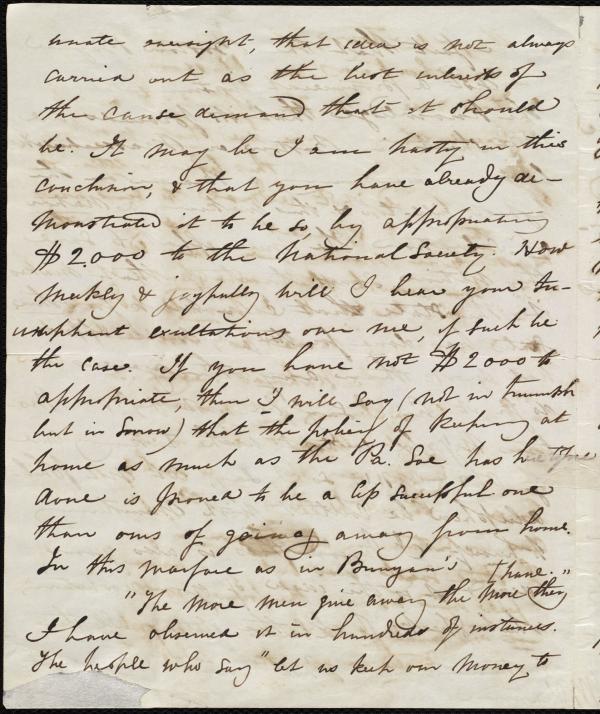 unate oversight, that idea is not always
carried out as the best interests of
the cause demand that it should
be. It may be I am hasty in this
conclusion, & that you have already de-
monstrated it to be so by appropriating
$2.000 to the National Society. How
meekly & joyfully will I hear your tri-
umphant exultations over me, if such be
the case. If you have not $2000 to
appropriate, then I will say (not in triumph
but in sorrow) that the policy of keeping at
home as much as the Pa. Soc has heretofore
done is proved to be a less successful one
than ours of going away from home.
In this warfare as in Bunyan's
[have."
"The more men give away the more they
I have observed it in hundreds of instances.
The people who say "let us keep our money to